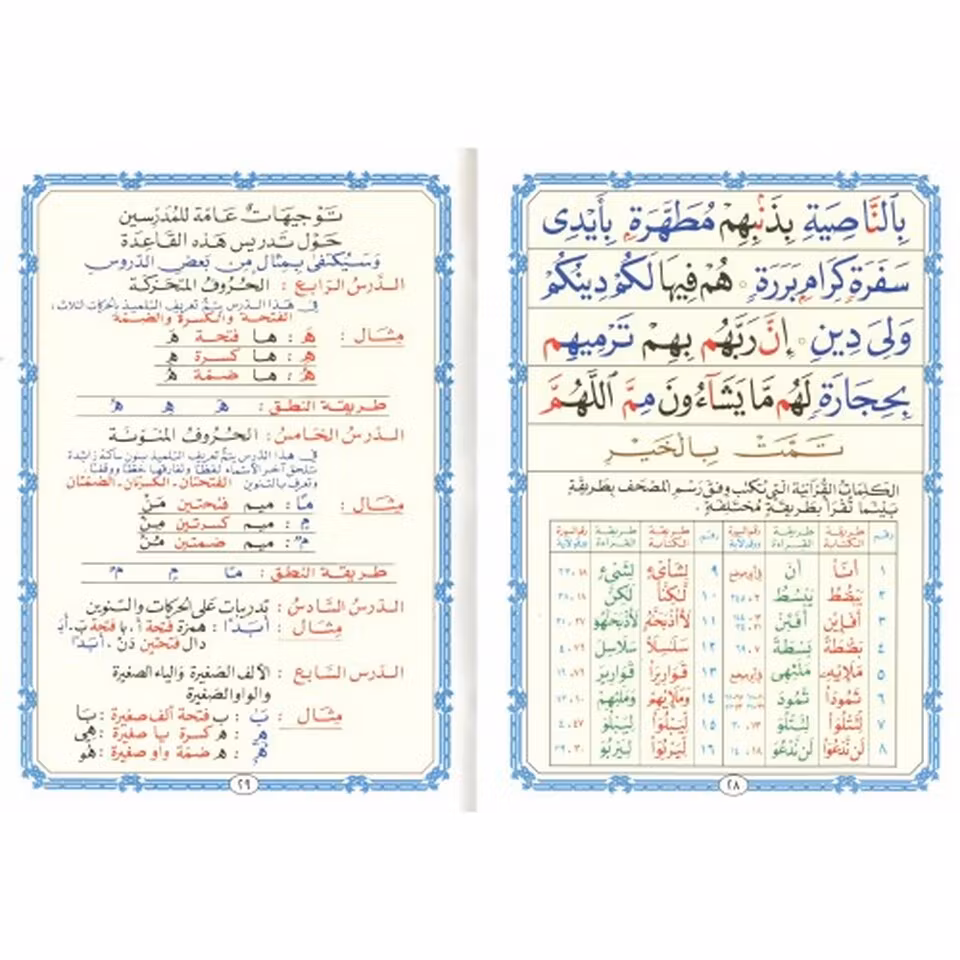 بِٱلنَّاصِيَةِ بِذَنۢبِهِمْ مُطَهَّرَةٍۭ بِأَيْدِى
سَفَرَةٍ كِرَامٍۭ بَرَرَةٍ ۝ هُمْ فِيهَا لَكُمْ دِينُكُمْ
وَلِىَ دِينِ ۝ إِنَّ رَبَّهُم بِهِمْ تَرْمِيهِم
بِحِجَارَةٍ لَهُم مَّا يَشَآءُونَ مِمَّ ٱللَّهُمَّ
تَمَّتْ بِالْخَيْرِ
الكلمات القرآنية التي تكتب وفق رسم المصحف بطريقة
بينما تقرأ بطريقة مختلفة .
رقم طريقة الكتابة طريقة القراءة رقم السورة ورقم الآية رقم طريقة الكتابة طريقة القراءة رقم السورة ورقم الآية
١ أَنَا أَنَ ٩ لِشَاىْءٍ لِشَىْءٍ ١٨،٢٣
٢ يَبْصُطُ يَبْسُطُ ٢،٢٤٥ ١٠ لَٰكِنَّا لَٰكِنَّ ١٨،٣٨
٣ أَفَا۟ئِن أَفَئِنْ ١١ لَأَا۟ذْبَحَنَّهُ لَأَذْبَحَنَّهُ ٢٧،٢١
٤ بَصْطَةً بَسْطَةً ٧،٦٩ ١٢ سَلَٰسِلَا۟ سَلَاسِلَ ٧٦،٤
٥ مَلَإِيهِ مَلَئِهِى ١٣ قَوَارِيرَا۟ قَوَارِيرَ ٧٦،١٦
٦ ثَمُودَا۟ ثَمُودَ ١٤ وَمَلَإِيهِمْ وَمَلَئِهِمْ ١٠،٨٣
٧ لِتَتْلُوَا۟ لِتَتْلُوَ ١٣،٣٠ ١٥ لِيَبْلُوَا۟ لِيَبْلُوَ ٤٧،٤
٨ لَن نَّدْعُوَا۟ لَن نَّدْعُوَ ١٨،١٤ ١٦ لِيَرْبُوَا۟ لِيَرْبُوَ ٣٠،٣٩
٢٨
توجيهات عامة للمدرسين
حول تدريس هذه القاعدة
وسيكتفى بمثال من بعض الدروس
الدرس الرابع : الحروف المتحركة
في هذا الدرس يتم تعريف التلميذ بالحركات الثلاث،
الفتحة والكسرة والضمة
مثال : هَـ : ها فتحة هَـ
هِـ : ها كسرة هِـ
هُـ : ها ضمّة هُـ
طريقة النطق : هَـ هِـ هُـ
الدرس الخامس : الحروف المنونة
في هذا الدرس يتم تعريف التلميذ بنون ساكنة زائدة
تلحق آخر الأسماء لفظاً وتفارقها خطاً ووقفاً
وتعرف بالتنوين الفتحتان . الكسرتان . الضمتان
مثال : مًا : ميم فتحتين مَنْ
مٍ : ميم كسرتين مِنْ
مٌ : ميم ضمتين مُنْ
طريقة النطق : مًا مٍ مٌ
الدرس السادس : تدريبات على الحركات والتنوين
مثال : أَبَدًا : همزة فتحة أَ ، با فتحة بَ ، أَبَ
دال فتحتين دَنْ ، أَبَدًا
الدرس السابع : الألف الصغيرة والياء الصغيرة
والواو الصغيرة
مثال : بٰ : ب فتحة ألف صغيرة : بَا
هٖ : ه كسرة يا صغيرة : هِى
هٗ : ه ضمّة واو صغيرة : هُو
٢٩